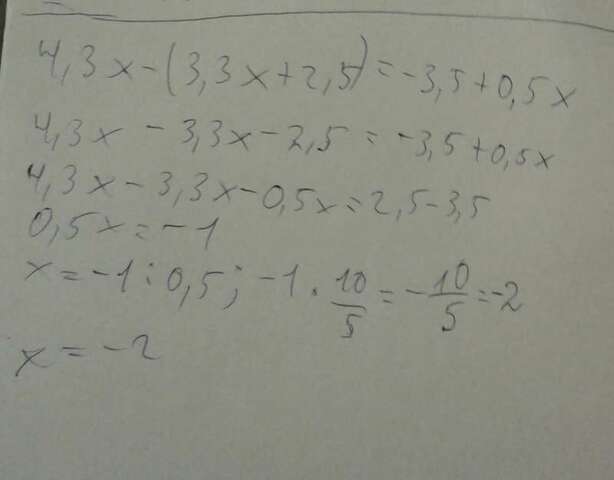 4,3x-(3,3x+2,5)=-3,5+0,5x
4,3x - 3,3x-2,5=-3,5+0,5x
4,3x-3,3x-0,5x=2,5-3,5
0,5x=-1
x=-1:0,5; -1·10/5=-10/5=-2
x=-2